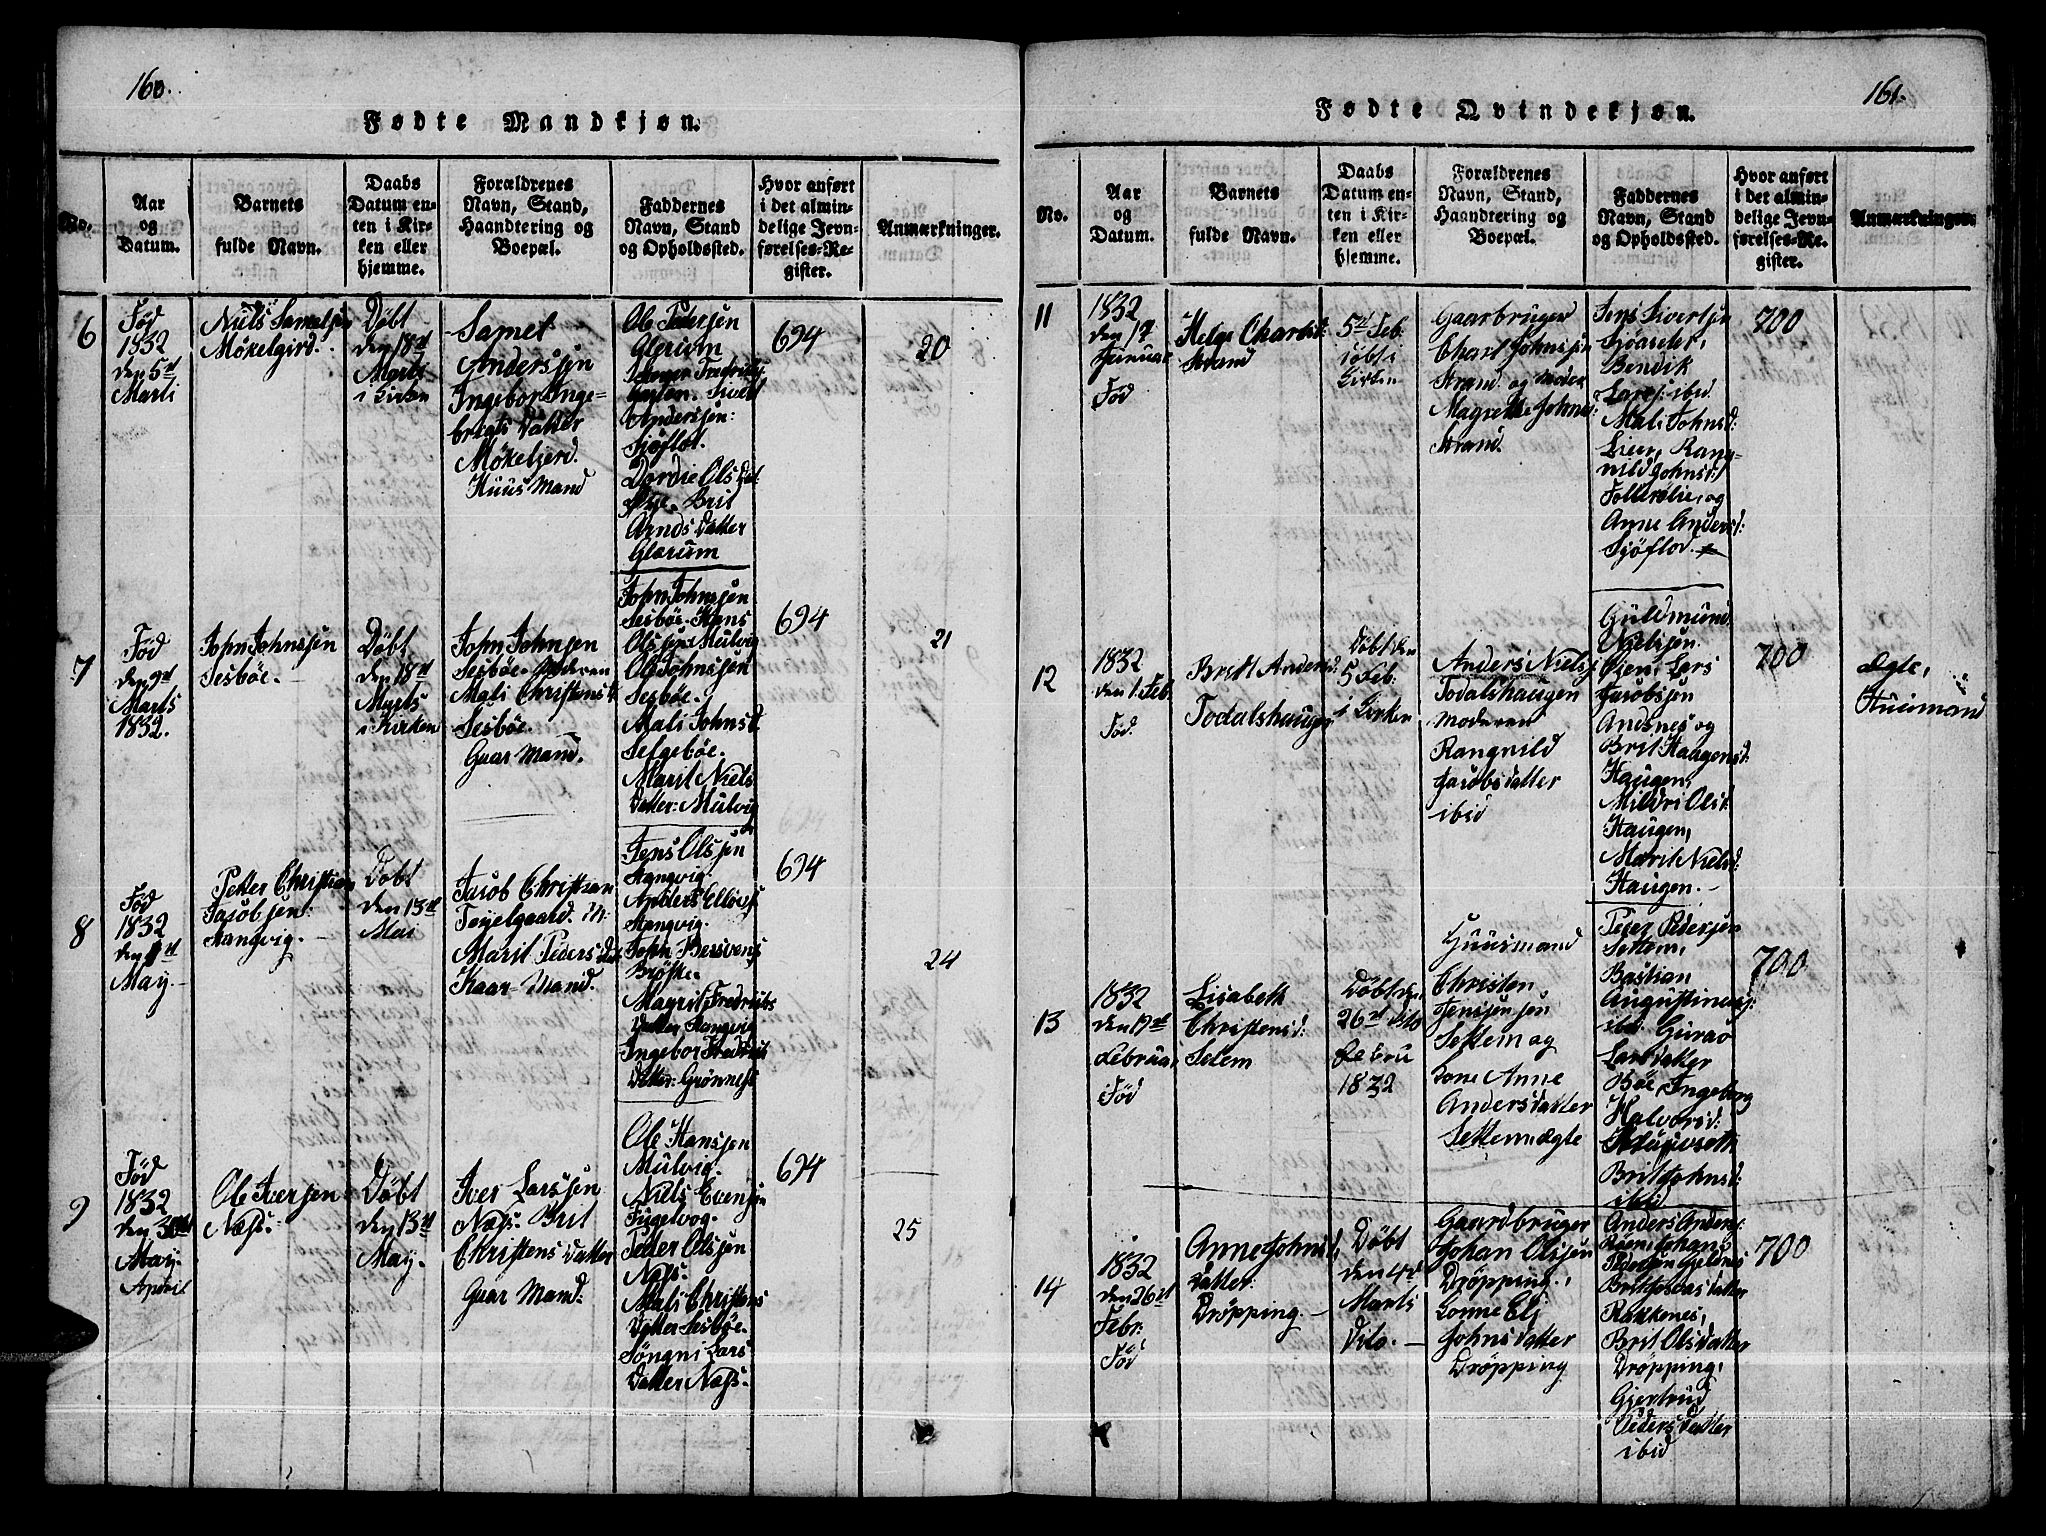 160.
Fødte Mandkjøn.
No.
Aar
og
Datum.
Barnets
fulde Navn.
Daabs
Datum en-
ten i Kir-
ken eller
hjemme.
Forældrenes
Navn, Stand,
Haandtering og
Boepæl.
Faddernes
Navn, Stand
og Opholdssted.
Hvor anført
i det almin-
delige Jevn-
førelses-Re-
gister.
Anmærkninger.
6
Fød
1832
den 5te
Marti
Niels Samelsen
Møkelgird.
Døbt
den 18de
Marti
i Kirken
Samel
Anderssen
Ingebor Inge-
brigts Datter
Møkelgerd.
Huus Mand
Ole Pedersen
Glærum
Andersen:
Sjøflot.
Dordie Ols Dat
Øye. Brit
Arnds Datter
Glærum
694
20
7
Fød
den 9de
Marts
1832.
John Johnssen
Sesbøe.
Døbt
den 18de
Marts
i Kirken
John Johnsen
Sesbøe. Moderen
Mali Christensd:
Sesbøe.
Gaar Mand.
John Johnssen
Sesbøe. Hans
Olssen Mulvig
Ole Johnssen
Sesbøe.
Mali Johnsd
Selgebøe.
Marit Niels
Datter: Mulvig
694
21
8
Fød
1832
May.
Petter Christian
Jacobsen:
Stangvig.
Døbt
den 13de
Mai
Jacob Christian
M:
Marit Peders Dat
Gaar Mand.
Jens Olssen
Stangvig.
Anders
Stangvig.
John
Brøske.
Magrit Fredriks
Datter Stangvig
Ingebor Fredriks
Datter: Grønnes
694
24
9
Fød
1832
den 30te
May.
April
Ole Iversen
Næss.
Døbt
den 13de
May.
Iver Larssen
Næss. Brit
Christens Datter
Gaar Mand.
Ole Hanssen
Mulvig.
Niels Evensen
Fugelvog.
Peder Olssen
Næss.
Mali Christens
Datter Sesbøe.
Lars
Datter Næss.
694
25
161.
Fødte Qvindekjøn.
No.
Aar
og
Datum.
Barnets
fulde Navn.
Daabs
Datum en-
ten i Kir-
ken eller
hjemme.
Forældrenes
Navn, Stand,
Haandtering og
Boepæl.
Faddernes
Navn, Stand
og Opholdssted.
Hvor anført
i det almin-
delige Jevn-
førelses-Re-
gister.
Anmærkninger.
11
1832
den 17
Januar
Fød
Helge Charlsd:
Strand
5te Feb.
døbt i
Kirken
Gaarbruger
Charl Johnsen
Strand og Moder
Magrethe Johns:
Strand.
Jens Sivertsen
Sjøaseter,
Bendik
Lars: ibid.
Mali Johnsd:
Lien, Rang-
nild Johnsd:
og
Anne Andersd:
Sjøflod.
700
12
1832
den 1. Feb.
Fød.
Bredt Andersd.
Todalshaugen
Døbt den
5 Feb:
i Kirken
Anders Niels:
Todalshaugen
Moderen
Rangnild
Jacobsdatter
ibid
Guldmund
Nielsen.
Øien, Lars
Jacobsen
Andsnes og
Brit Haagensd.
Haugen,
Mildri Olsd:
Haugen,
Marit Nielsd:
Haugen.
700
Ægte,
Huusmand
13
1832
den 17de
Februar
Fød
Lisabeth
Christensd:
Setem
Døbt den
26de
Febru
1832
Huusmand
Christen
Jenssen
Settem og
Kone Anne
Andersdatter
Settem ægte
Peder Pedersen
Settem,
Bastian
ibid: Guroe
Larsdatter
Bøe, Ingeborg
Halvorsd:
Brit Johnsd:
ibid
700
14
1832
den 26de
Febr:
Fød
Anne Johns
datter:
Drøpping.
Døbt
den 4de
Marti
Dito.
Gaardbruger
Johan Olssen
Drøpping.
Konne Eli
Johnsdatter
Drøpping
Anders Anders:
Røen, Johans
Pedersen Gjeldnes
Brit datter
Rakkenes,
Brit Olsdatter
Drøpping,
Gjertrud
Pedersdatter
ibid
700